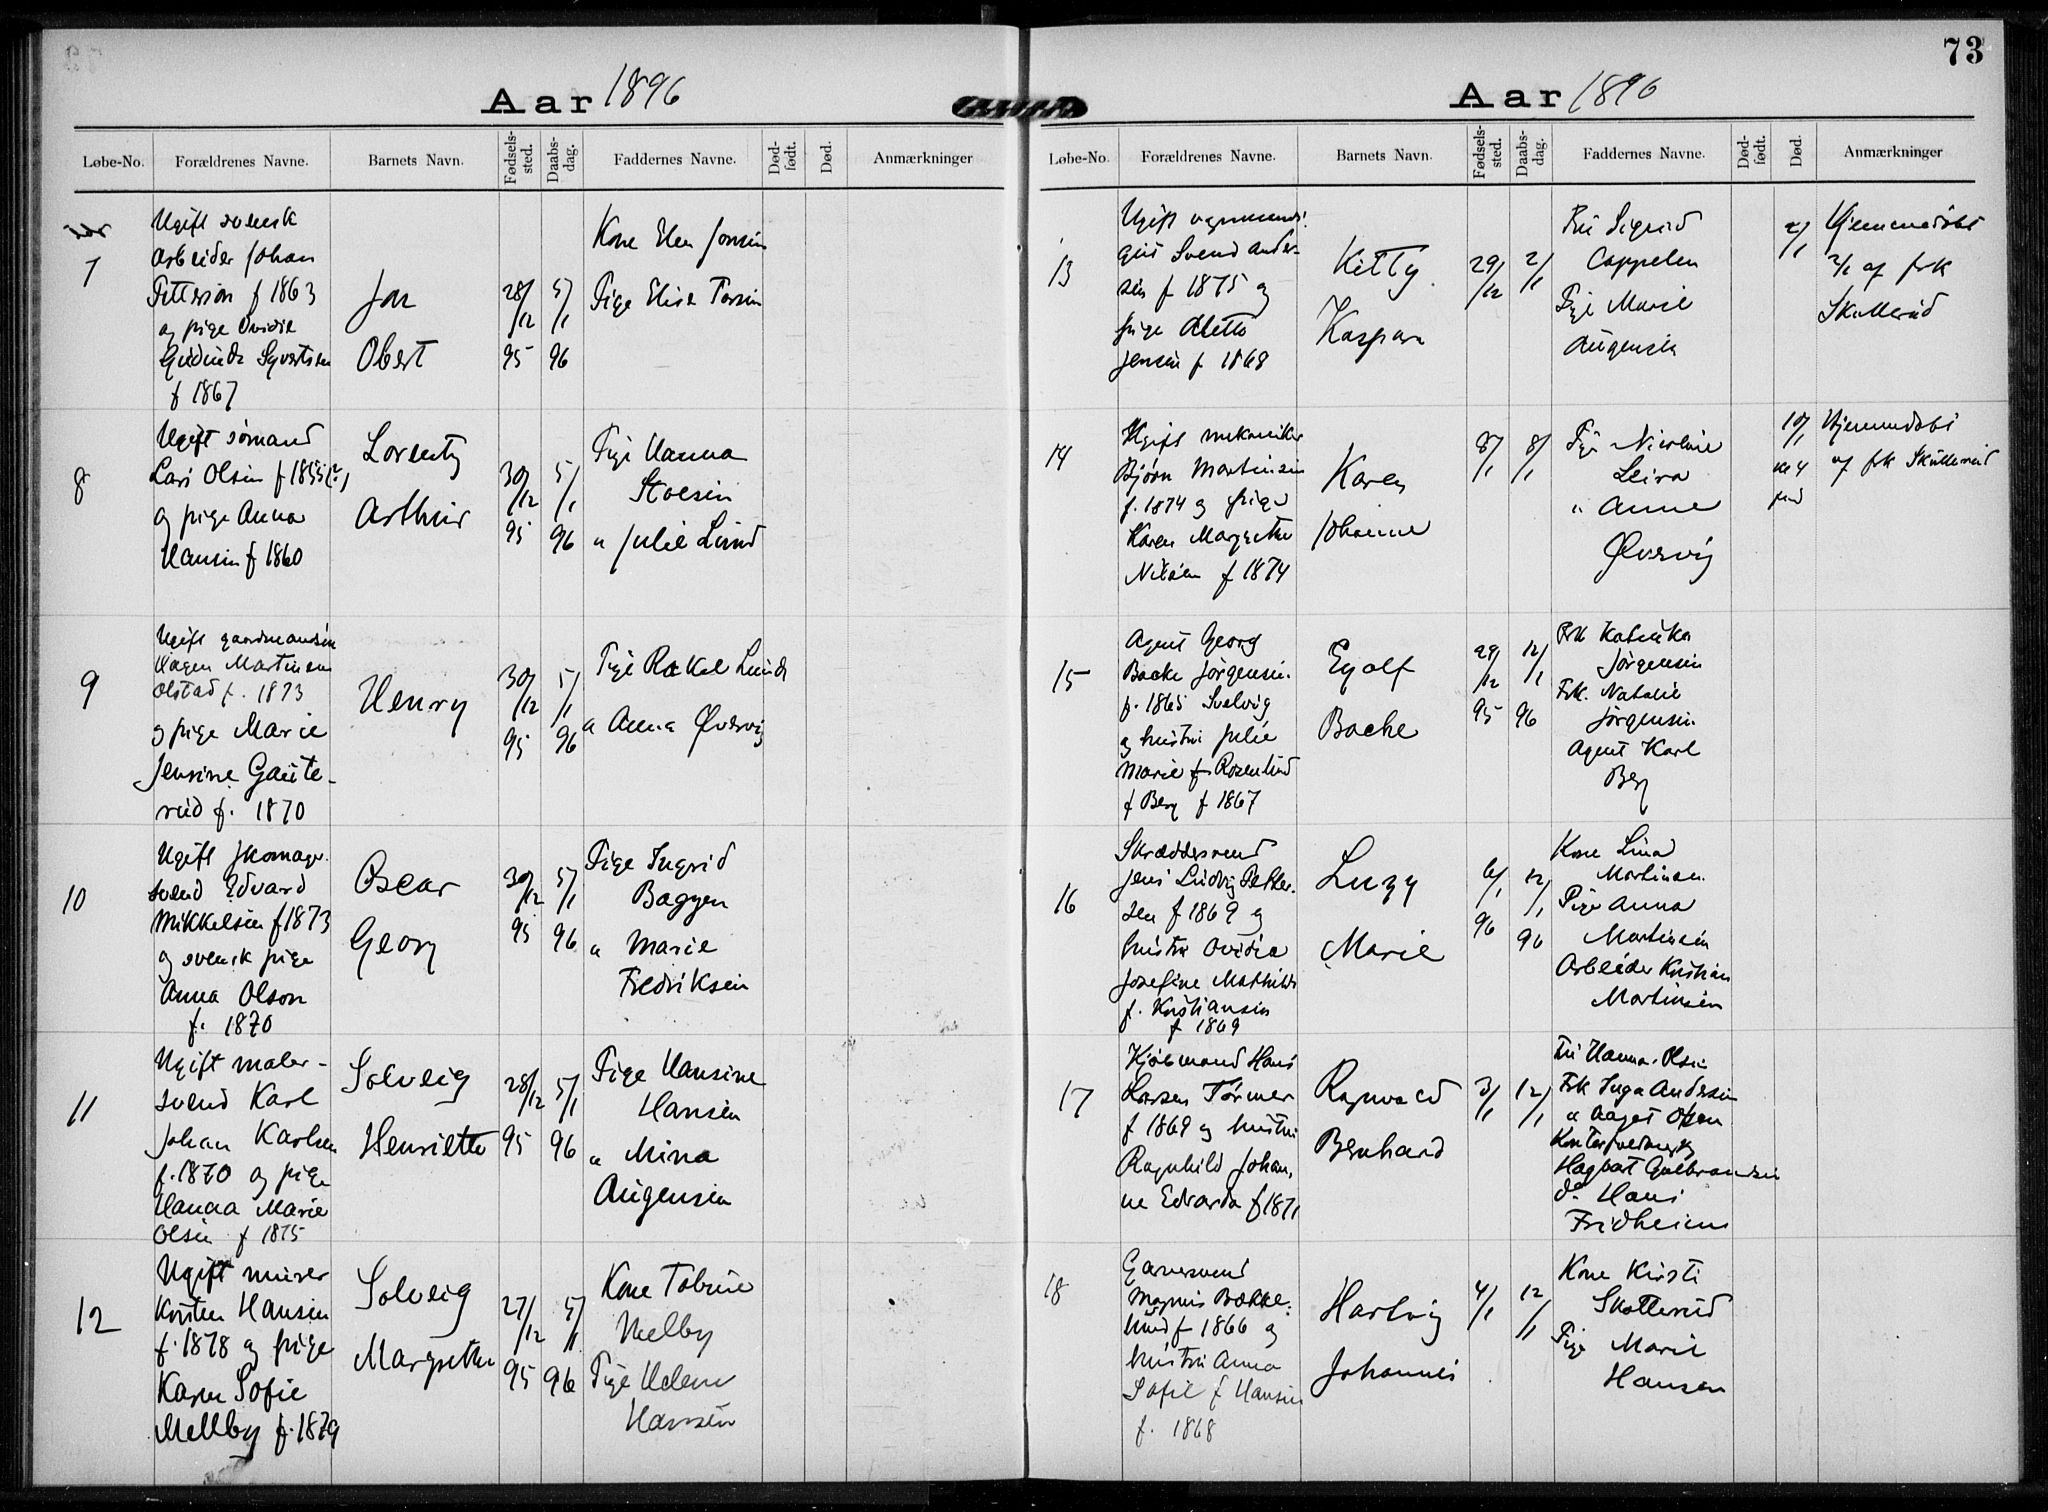 73
Aar 1896
Løbe-No. Forældrenes Navne. Barnets Navn. Fødsels-sted. Daabs-dag. Faddernes Navne. Død-født. Død. Anmærkninger
7
Ugift svensk
arbeider Johan
Petterson f 1863
og pige Ovidie
Syvertsen
f 1867
Jon
Obert
28/12 95
5/1 96
Kone Elen Jonsen
Pige Elise
8
Ugift sømand
Lars Olsen f 1855(?)
og pige Anna
Hansen f 1860
Lorentz
Arthur
30/12 95
5/1 96
Pige Hanna
" Julie Lund
9
Ugift gaardmandssøn
Hagen Martinsen
Olstad f. 1873
og pige Marie
Jensine Gaute-
rud f. 1870
Henry
30/12 95
5/1 96
Pige Rakel Lund
" Anna Øvervig
10
Ugift skomager
svend Edvard
Mikkelsen f 1873
og svensk pige
Anna Olson
f. 1870
Oscar
Georg
30/12 95
5/1 96
Pige Ingrid
Baggen
" Marie
Fredriksen
11
Ugift maler-
svend Karl
Johan Karlsen
f. 1870 og pige
Hanna Marie
Olsen f 1875
Solveig
Henriette
28/12 95
5/1 96
Pige Hansine
Hansen
" Mina
Augensen
12
Ugift murer
Kristen Hansen
f. 1878 og pige
Karen Sofie
Mellby f. 1879
Solveig
Margrethe
27/12 95
5/1 96
Kone Tobine
Melby
Pige Helene
Hansen
Aar 1896
Løbe-No. Forældrenes Navne. Barnets Navn. Fødsels-sted. Daabs-dag. Faddernes Navne. Død-født. Død. Anmærkninger
13
Ugift
Svend Ander-
sen f 1875 og
pige Alette
Jensen f 1868
Kitty
Kaspara
29/12
2/1
Fru Sigrid
Cappelen
Pige Marie
Augensen
2/1
Hjemmedøbt
2/1 af frk
Skullerud
14
Ugift mekaniker
Bjørn Martinsen
f. 1874 og pige
Karen Margrethe
Nilsen f 1874
Karen
Johanne
8/1
8/1
Pige Nicoline
Leira
" Anne
Øvervig
10/1
Hjemmedøbt
af frk Skullerud
15
Agent Georg
Backe Jørgensen
f. 1865 Svelvig
og hustru Julie
Marie Rosenlund
f Berg f 1867
Eyolf
Backe
29/12 95
12/1 96
Frk Katinka
Jørgensen
Frk. Natalie
Jørgensen
Agent Karl
Berg
16
Skræddersvend
Jens Ludvig Petter-
sen f 1869 og
hustru Ovidia
Josefine Mathilde
f. Kristiansen
f 1869
Luzy
Marie
6/1 96
12/1 96
Kone Lina
Martinsen
Pige Anna
Martinsen
Arbeider Kristian
Martinsen
17
Kjøbmand Hans
Larsen Tørmer
f 1869 og hustru
Ragnhild Johan-
ne Edvarda f 1871
Ragnvald
Bernhard
3/1
12/1
Fru Hanna Olsen
Frk Inga Andersen
" Aagot Olsen
Hagbart Gulbrandsen
do Hans
Fridheim
18
Garversvend
Magnus Bække-
lund f 1866 og
hustru Anna
Sofie f Hansen
f. 1868
Hartvig
Johannes
4/1
12/1
Kone Kirsti
Skotterud
Pige Marie
Hansen